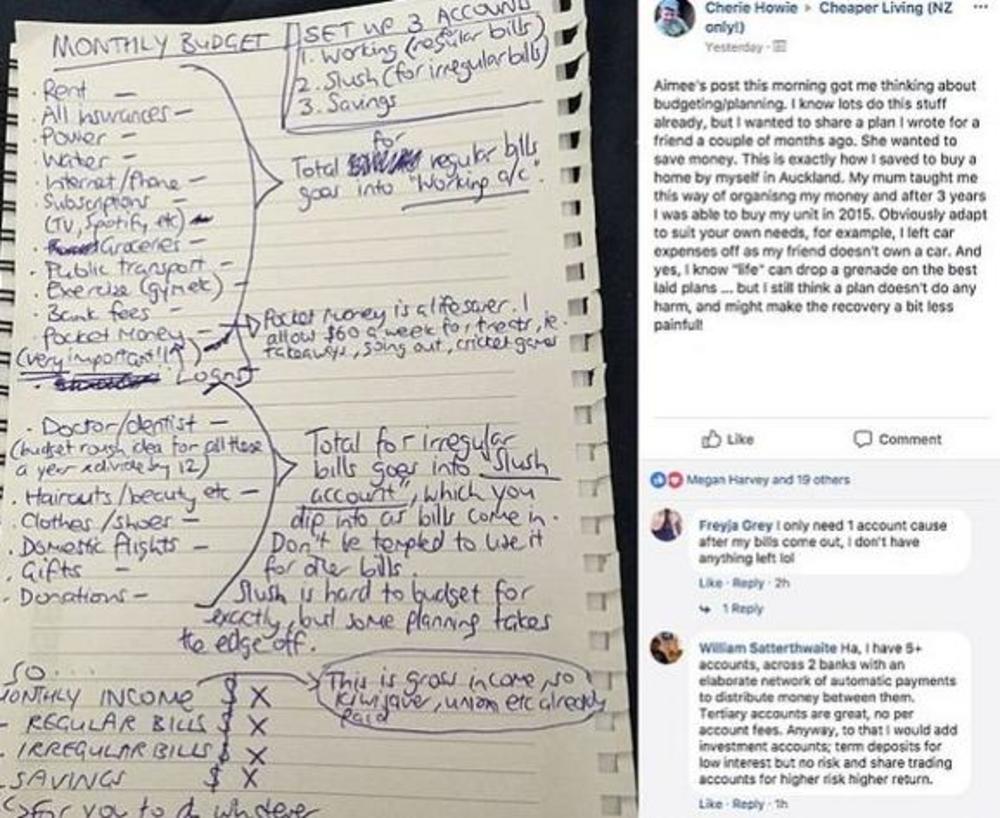 MONTHLY BUDGET
SET UP 3 ACCOUNT
1. Working (regular bills)
2. Slush (for irregular bills)
3. Savings
· Rent —
· All insurances —
· Power —
· Water —
· Internet/Phone —
· Subscriptions —
(TV, Spotify, etc) —
· Groceries —
· Public transport —
· Exercise (gym etc) —
· Bank fees —
· Pocket Money —
(very important!!!)
· Loans
for
Total regular bills
goes into "Working a/c".
Pocket money is a lifesaver. I
allow $60 a week for treats, ie.
takeaways, going out, cricket games
· Doctor/dentist —
(budget rough idea for all these
a year & divide by 12)
· Haircuts/beauty etc —
· Clothes/shoes —
· Domestic flights —
· Gifts —
· Donations —
Total for irregular
bills goes into "Slush
account", which you
dip into as bills come in.
Don't be tempted to use it
for other bills.
Slush is hard to budget for
exactly, but some planning takes
the edge off.
SO....
MONTHLY INCOME $ X
- REGULAR BILLS $ X
- IRREGULAR BILLS $ X
- SAVINGS $ X
This is gross income, so
Kiwisaver, union etc already
paid
for you to do whatever
Cherie Howie ▸ Cheaper Living (NZ
only!)
Yesterday ·
Aimee's post this morning got me thinking about
budgeting/planning. I know lots do this stuff
already, but I wanted to share a plan I wrote for a
friend a couple of months ago. She wanted to
save money. This is exactly how I saved to buy a
home by myself in Auckland. My mum taught me
this way of organisng my money and after 3 years
I was able to buy my unit in 2015. Obviously adapt
to suit your own needs, for example, I left car
expenses off as my friend doesn't own a car. And
yes, I know "life" can drop a grenade on the best
laid plans ... but I still think a plan doesn't do any
harm, and might make the recovery a bit less
painful!
Like
Comment
Megan Harvey and 19 others
Freyja Grey I only need 1 account cause
after my bills come out, I don't have
anything left lol
Like · Reply · 2h
1 Reply
William Satterthwaite Ha, I have 5+
accounts, across 2 banks with an
elaborate network of automatic payments
to distribute money between them.
Tertiary accounts are great, no per
account fees. Anyway, to that I would add
investment accounts; term deposits for
low interest but no risk and share trading
accounts for higher risk higher return.
Like · Reply · 1h